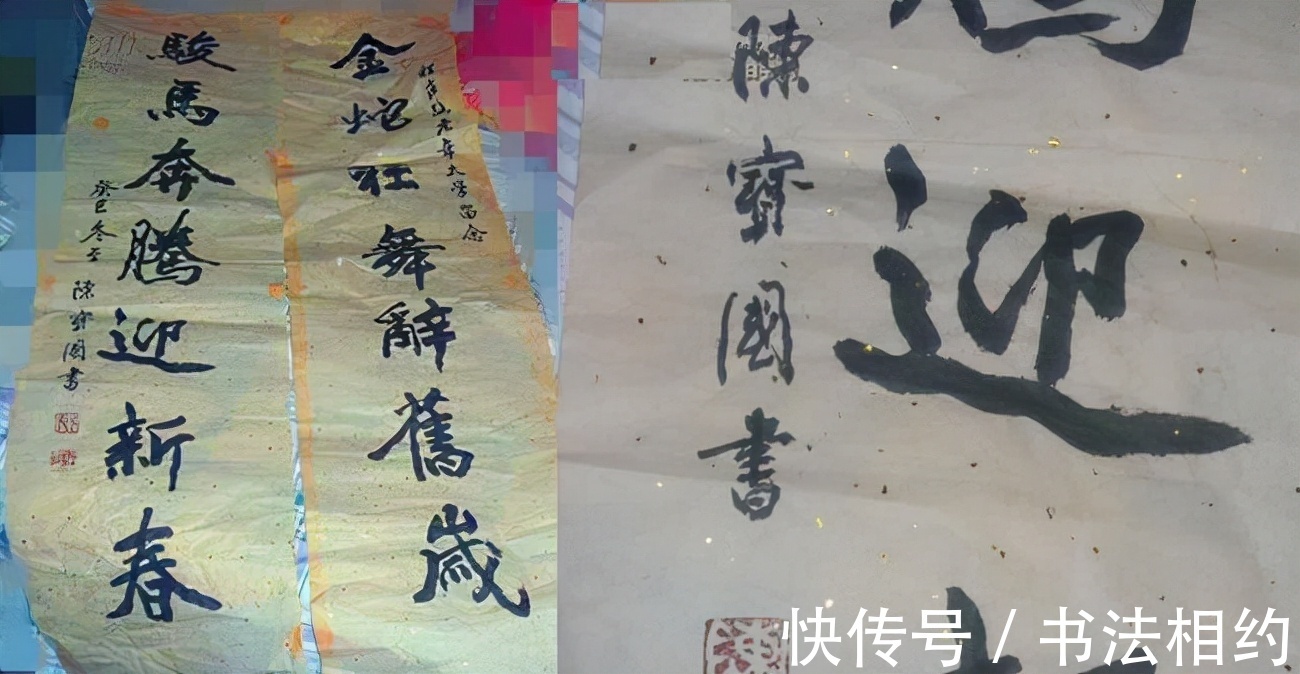 金蛇狂舞辭舊歲
老年大學留念
駿馬奔騰迎新春
癸巳冬至
陳寶國書
陳寶國書
迎
快传号 / 书法相约